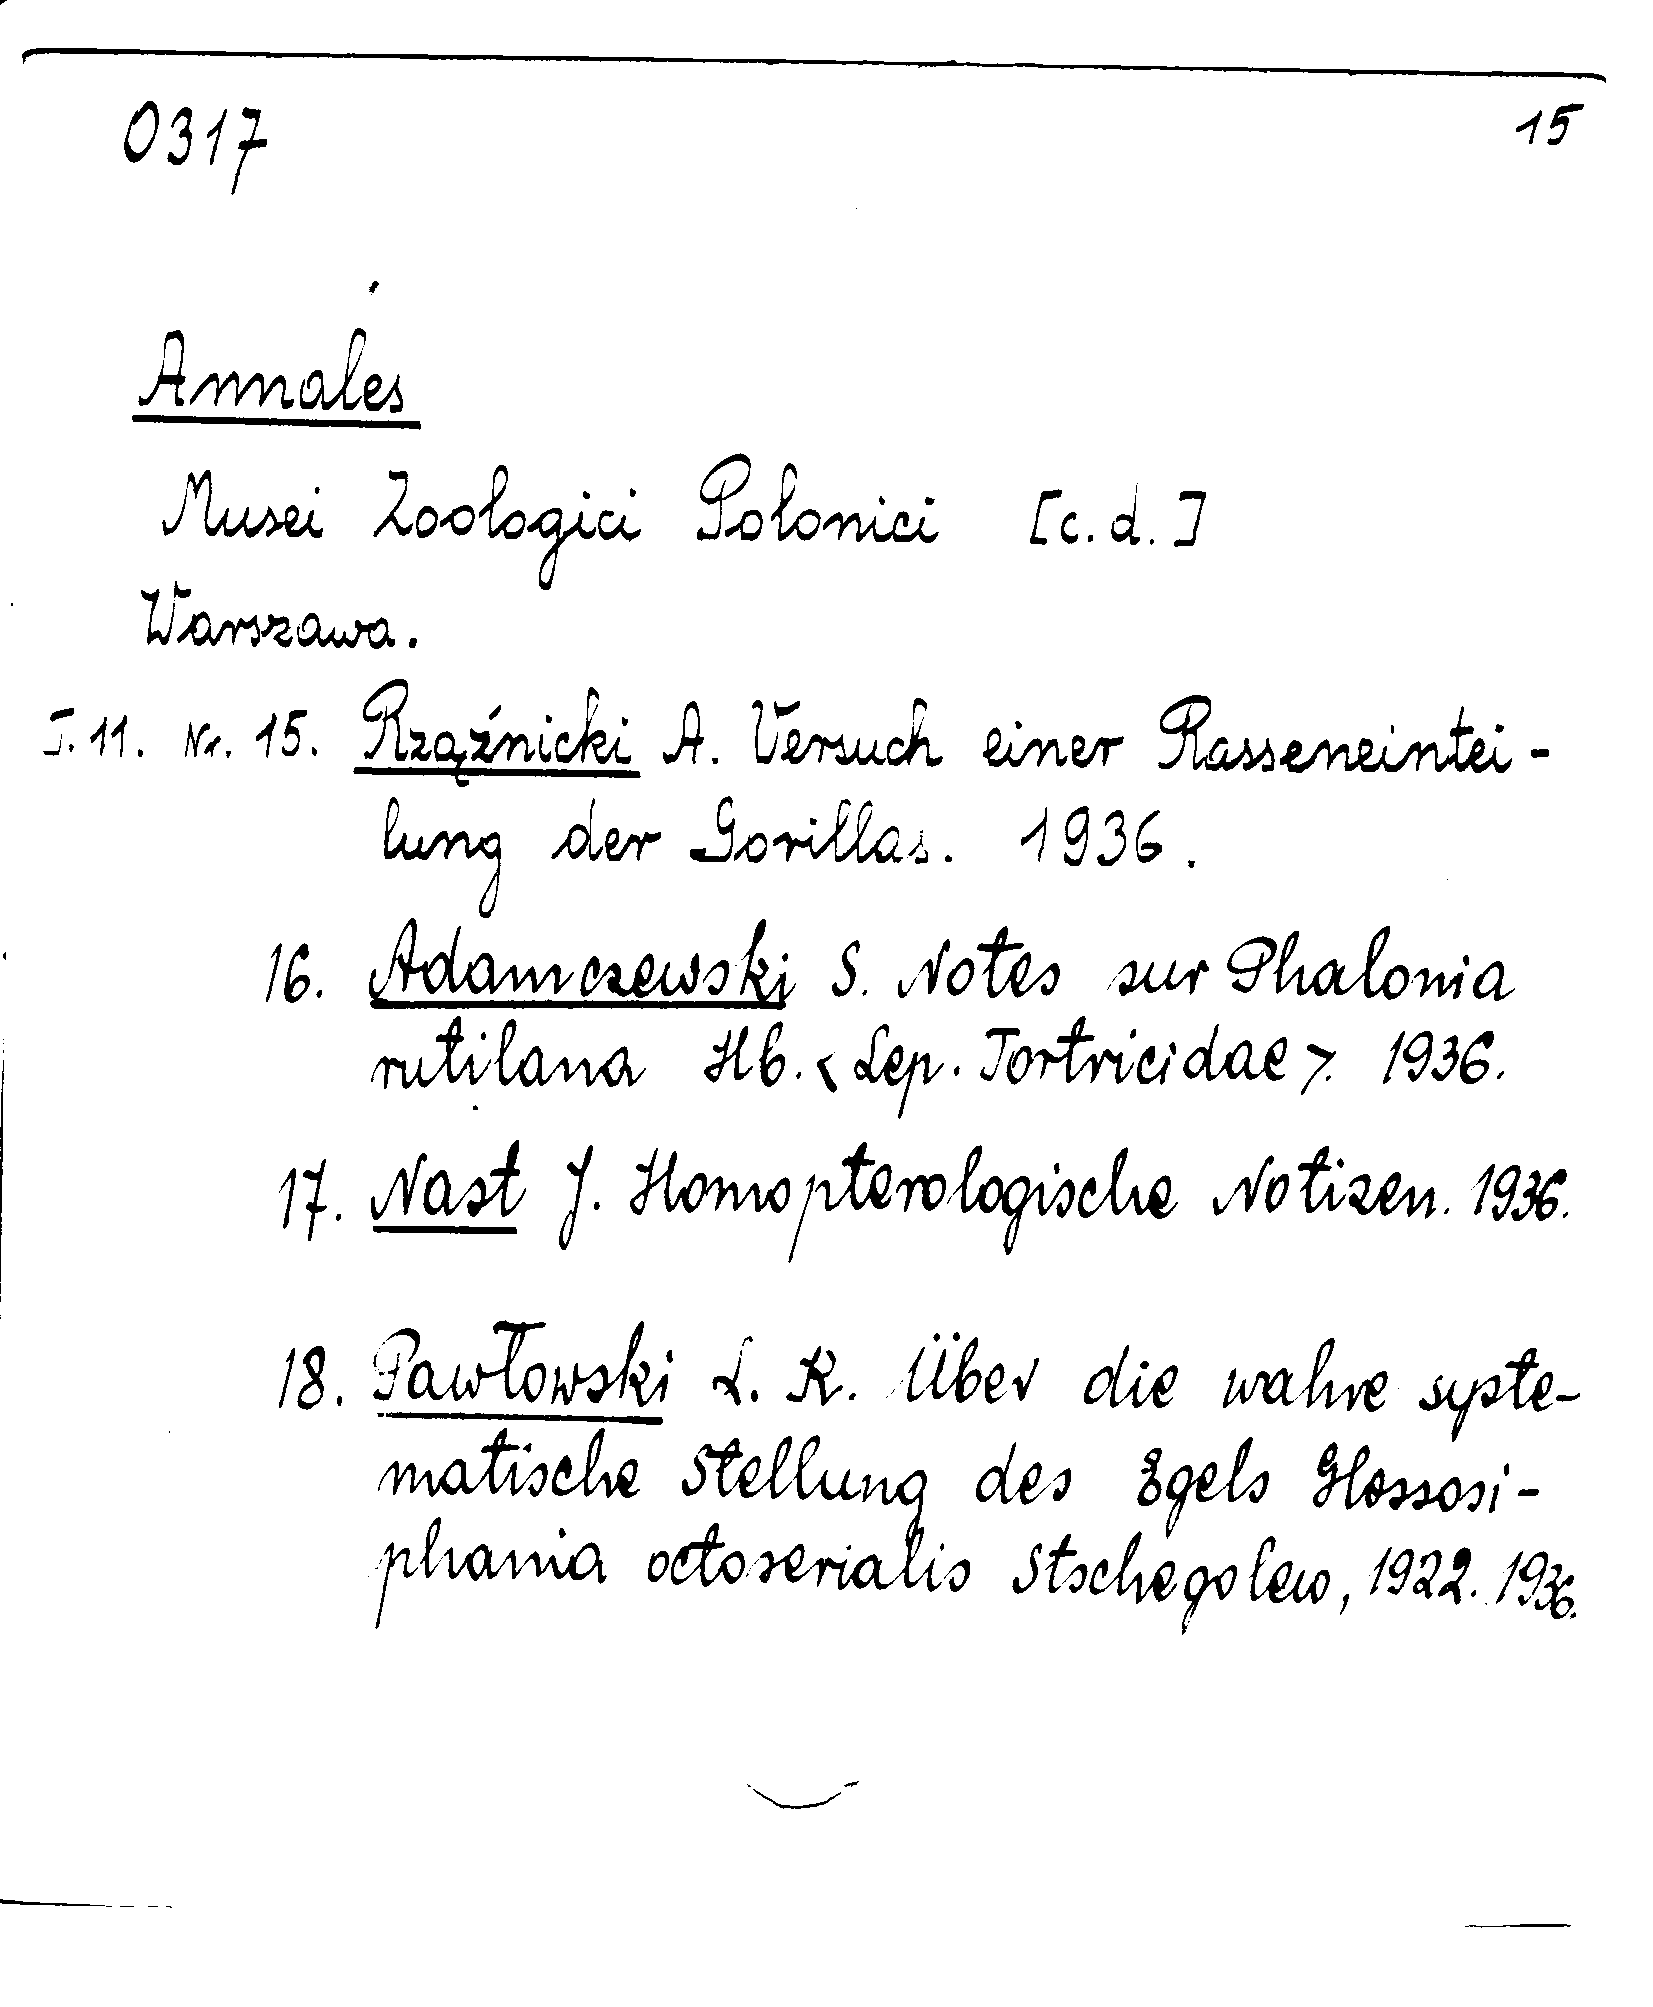 0317 15
Annales
Musei Zoologici Polonici [c.d.]
Warszawa.
T. 11. Nr. 15. Rząźnicki A. Versuch einer Rasseneintei-
lung der Gorillas. 1936.
16. Adamczewski S. Notes sur Phalonia
rutilana Hb. <Lep. Tortricidae>. 1936.
17. Nast J. Homopterologische Notizen. 1936.
18. Pawłowski L. K. Über die wahre syste-
matische Stellung des Egels Glossosi-
phania octoserialis Stschegolew, 1922. 1936.